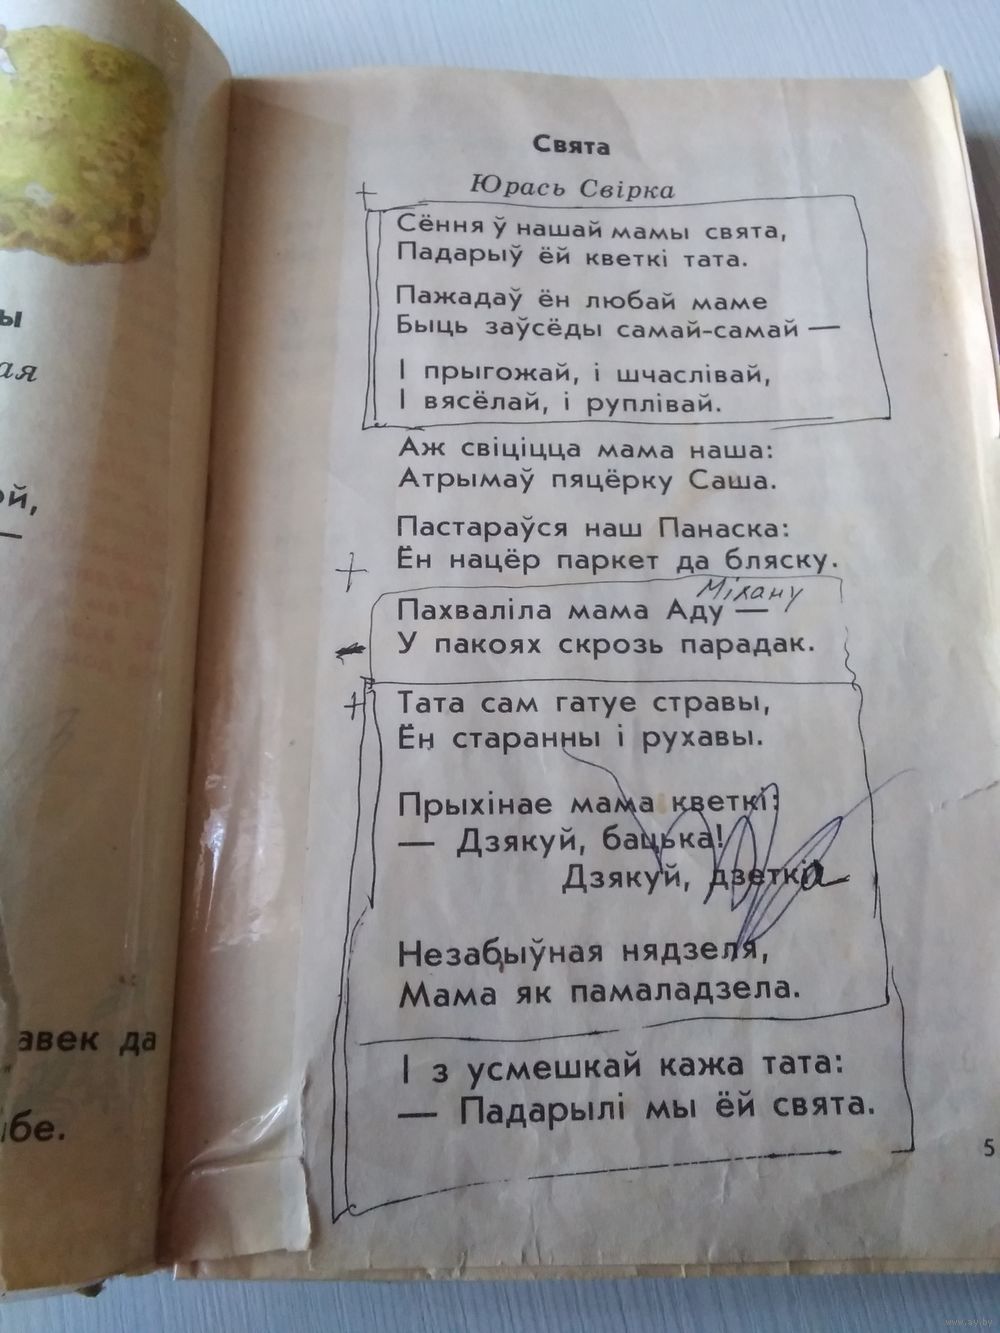 Свята
Юрась Свірка
Сёння ў нашай мамы свята,
Падарыў ёй кветкі тата.
Пажадаў ён любай маме
Быць заўсёды самай-самай —
І прыгожай, і шчаслівай,
І вясёлай, і руплівай.
Аж свіціцца мама наша:
Атрымаў пяцёрку Саша.
Пастараўся наш Панаска:
Ён нацёр паркет да бляску.
Пахваліла мама Аду —
У пакоях скрозь парадак.
Тата сам гатуе стравы,
Ён старанны і рухавы.
Прыхінае мама кветкі:
— Дзякуй, бацька!
Дзякуй, дзеткі
Незабыўная нядзеля,
Мама як памаладзела.
І з усмешкай кажа тата:
— Падарылі мы ёй свята.
5
ы
ая
ой,
—
авек да
ібе.
www.ay.by